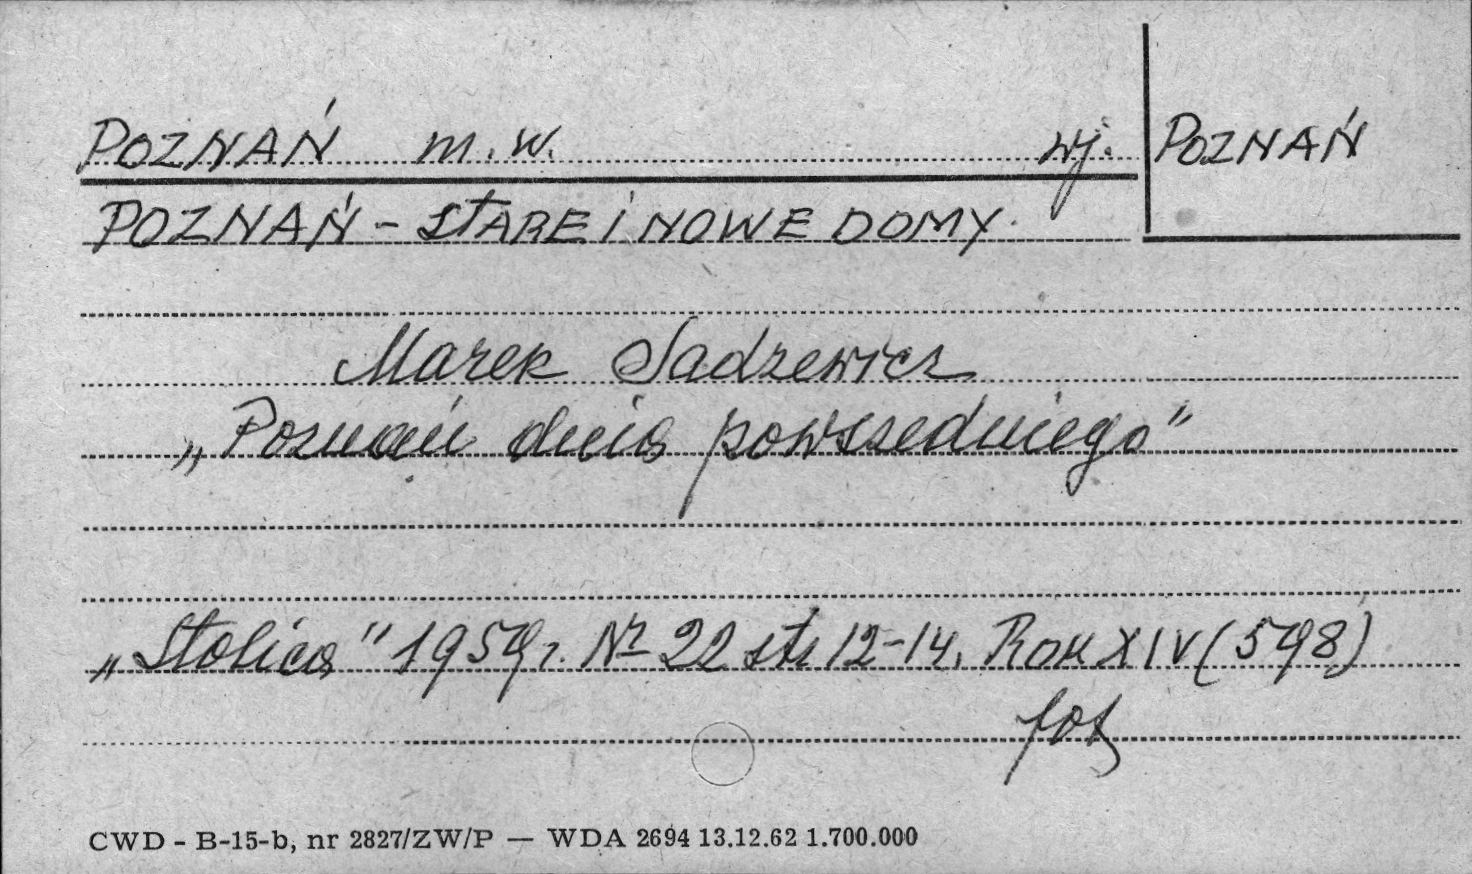 POZNAŃ m.w. wj. POZNAŃ
POZNAŃ - STARE I NOWE DOMY.
Marek Sadzewicz
„Poznań dnia powszedniego”
„Stolica” 1959 r. Nr 22 str 12-14, Rok XIV (598)
fot
CWD - B-15-b, nr 2827/ZW/P — WDA 2694 13.12.62 1.700.000